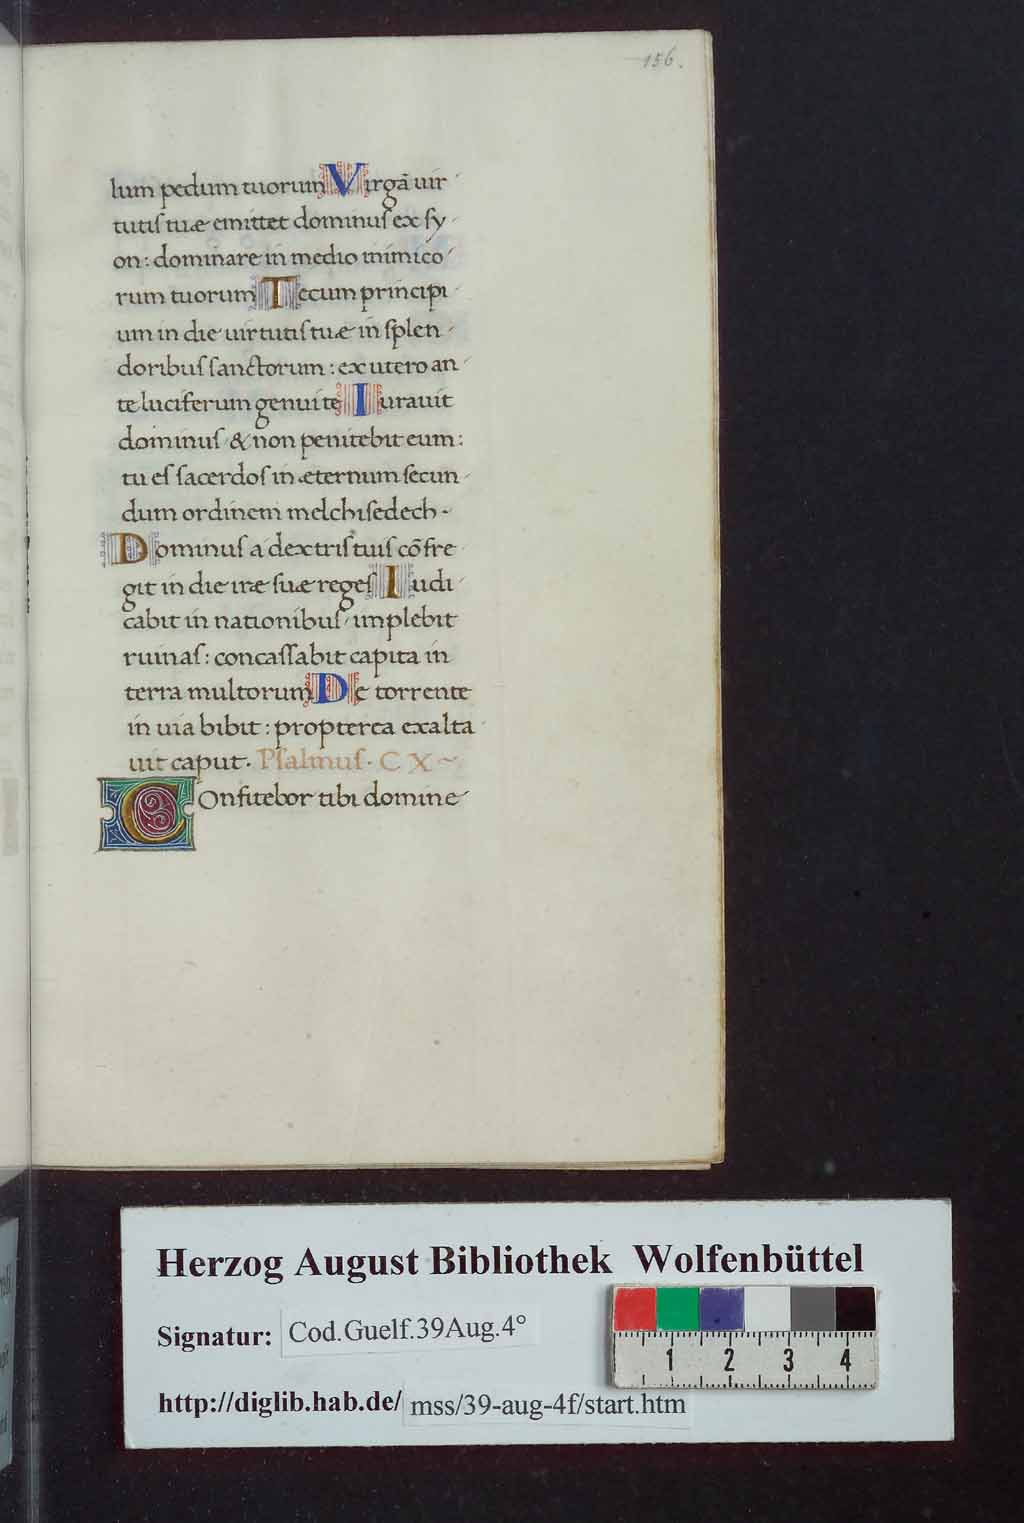 156.
lum pedum tuorum Virgā uir
tutis tuæ emittet dominus ex sy
on: dominare in medio inimico
rum tuorum Tecum principi
um in die uirtutis tuæ in splen
doribus sanctorum: ex utero an
te luciferum genui te Iurauit
dominus & non penitebit eum:
tu es sacerdos in æternum secun
dum ordinem melchisedech
Dominus a dextris tuis cōfre
git in die iræ suæ reges Iudi
cabit in nationibus implebit
ruinas: concassabit capita in
terra multorum De torrente
in uia bibit: propterea exalta
uit caput. Psalmus. C X ~
Confitebor tibi domine
Herzog August Bibliothek Wolfenbüttel
Signatur: Cod.Guelf.39Aug.4°
1 2 3 4
http://diglib.hab.de/mss/39-aug-4f/start.htm